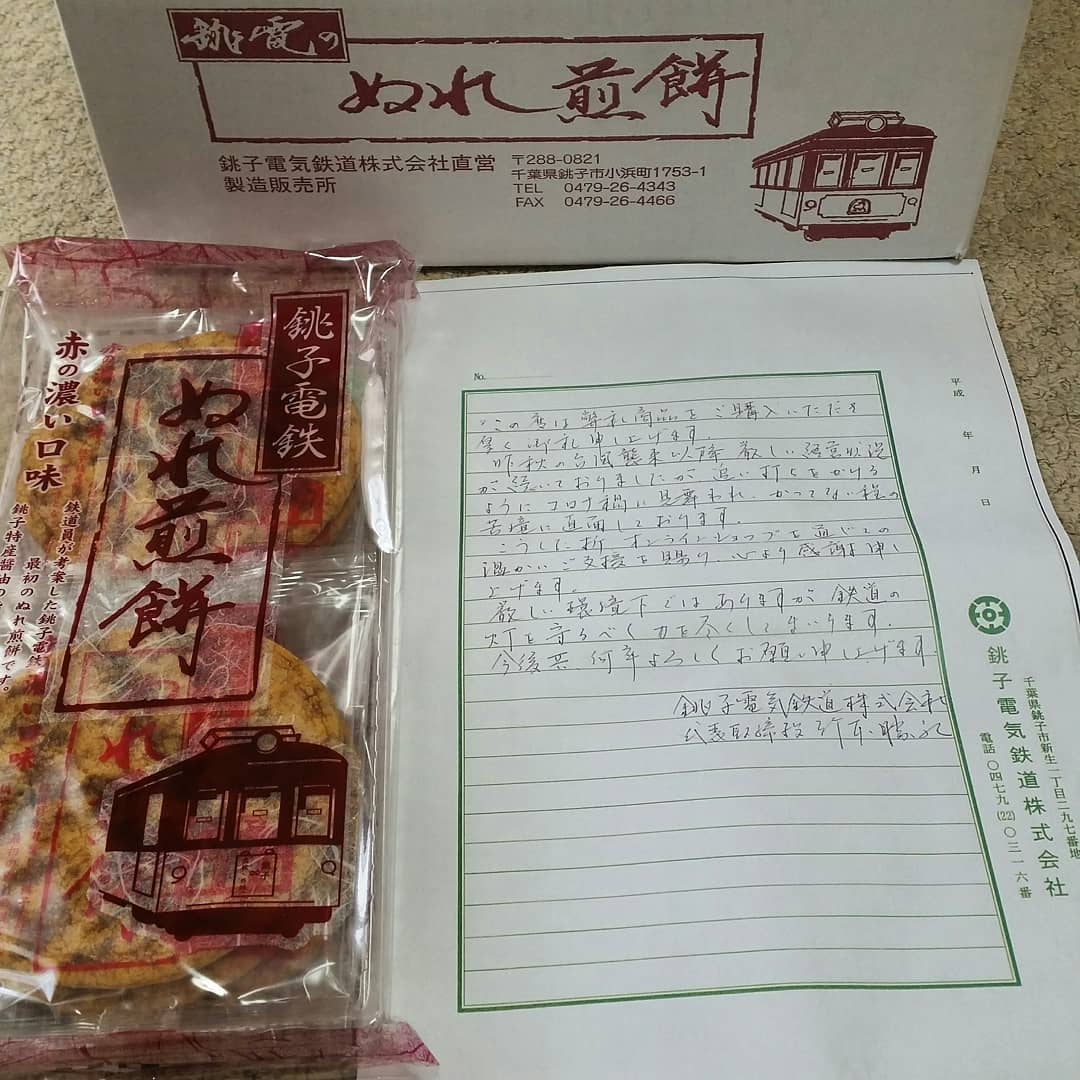 銚電の
ぬれ煎餅
銚子電気鉄道株式会社直営
製造販売所
〒288-0821
千葉県銚子市小浜町1753-1
TEL 0479-26-4343
FAX 0479-26-4466
銚子電鉄
ぬれ煎餅
赤の濃い口味
鉄道員が考案した銚子電鉄
最初のぬれ煎餅です。
銚子特産醤油の
No.
平成 年 月 日
この度は弊社商品をご購入いただき
厚く御礼申し上げます。
昨秋の台風襲来以降厳しい経営状況
が続いておりましたが追い打ちをかける
ようにコロナ禍に見舞われ、かつてない程の
苦境に直面しております。
こうした折 オンラインショップを通じての
温かいご支援を賜り、心より感謝申し
上げます。
厳しい環境下ではありますが鉄道の
灯を守るべく力を尽くしてまいります。
今後共何卒よろしくお願い申し上げます。
銚子電気鉄道株式会社
代表取締役 竹本勝紀
銚子電気鉄道株式会社
千葉県銚子市新生一丁目二九七番地
電話 〇四七九(22)〇三一六番